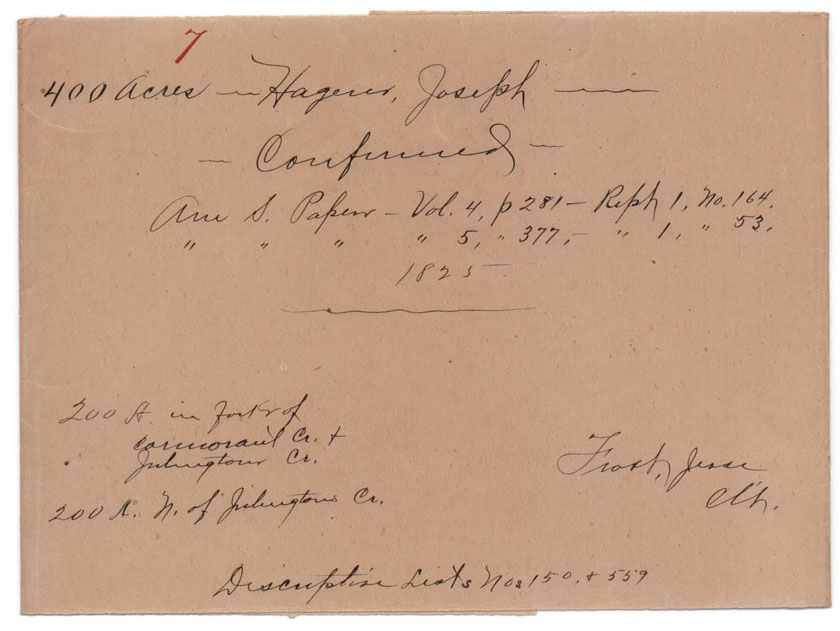 7
400 Acres — Hagens, Joseph —
— Confirmed —
Am S. Papers — Vol. 4, p 281 — Rept 1, No. 164.
" " " " 5, " 377, — " 1, " 53.
1825
200 A. in Fork of
Cormorant Cr. &
Julington Cr.
200 A. N. of Julington Cr.
Frost, Jesse
Clk.
Descriptive Lists Nos 150. & 559